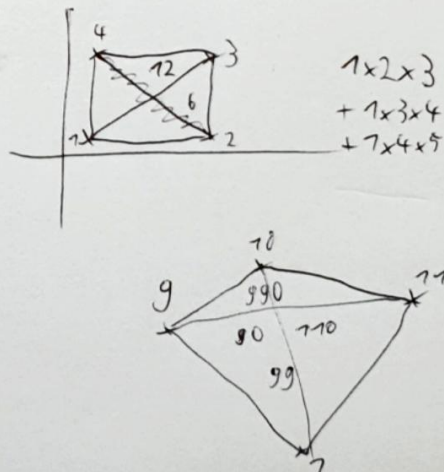 4
3
12
6
1
2
1x2x3
+ 1x3x4
+ 1x4x5
10
11
9
990
90
110
99
1